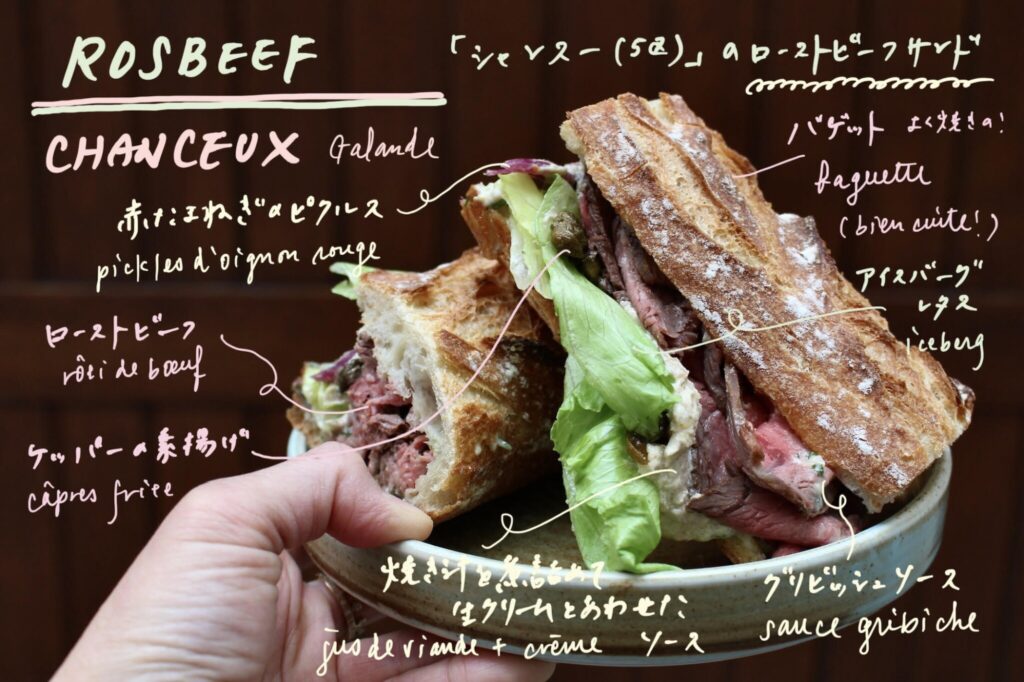 ROSBEEF
「シャンスー(5区)」のローストビーフサンド
CHANCEUX Galande
バゲット よく焼きの!
baguette
(bien cuite!)
赤たまねぎのピクルス
pickles d'oignon rouge
アイスバーグ
レタス
iceberg
ローストビーフ
rôti de bœuf
ケッパーの素揚げ
câpres frite
焼き汁を煮詰めて
生クリームとあわせた
jus de viande + crème ソース
グリビッシュソース
sauce gribiche